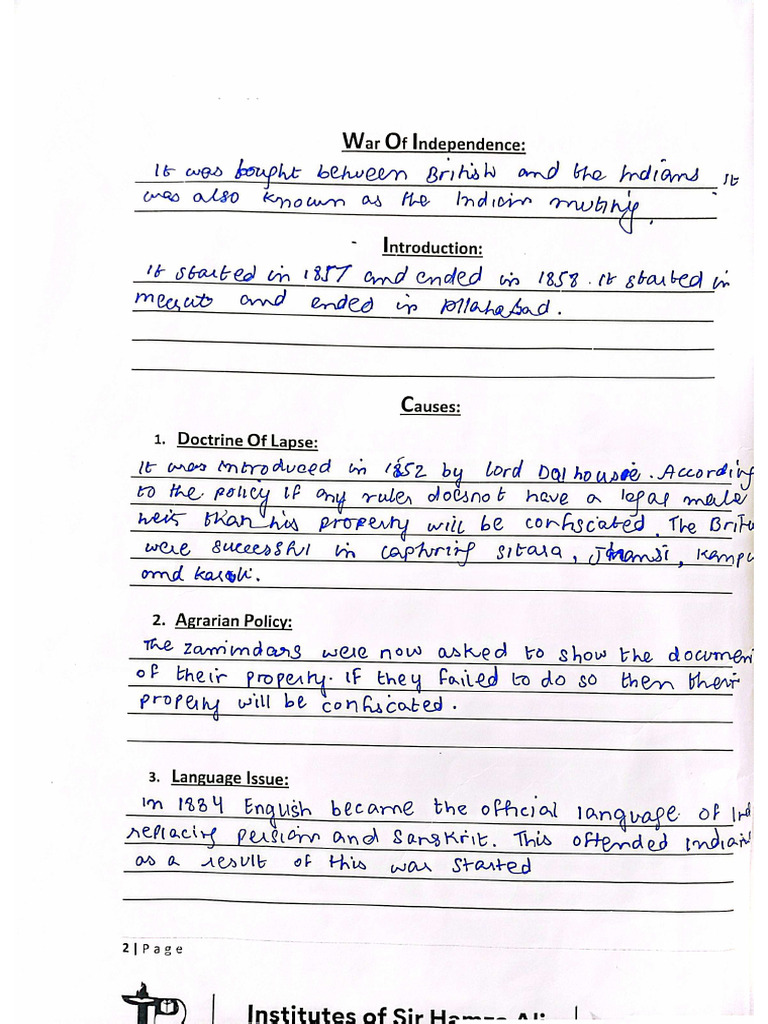 War Of Independence:
It was bought between British and the Indians It
was also known as the Indian mutiny.
Introduction:
It started in 1857 and ended in 1858. it started in
meerut and ended in Allahabad.
Causes:
1. Doctrine Of Lapse:
It was introduced in 1852 by lord Dalhousie. According
to the policy if any ruler doesnot have a legal male
heir than his property will be confisciated. The Briti
were successful in capturing sitara, Jhansi, Kanpu
and karoli.
2. Agrarian Policy:
The zamindars were now asked to show the documen
of their property. If they failed to do so then their
property will be confiscated.
3. Language Issue:
In 1834 English became the official language of Ind
replacing persian and Sanskrit. This offended Indians
as a result of this war started
2 | Page
Institutes of Sir Hamza Ali